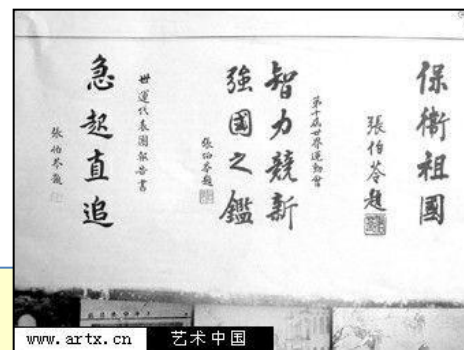 保衛祖國
張伯苓題
第十屆世界運動會
智力競新
強國之鑑
張伯苓題
世運代表團報告書
急起直追
張伯苓題
www.artx.cn 艺术中国